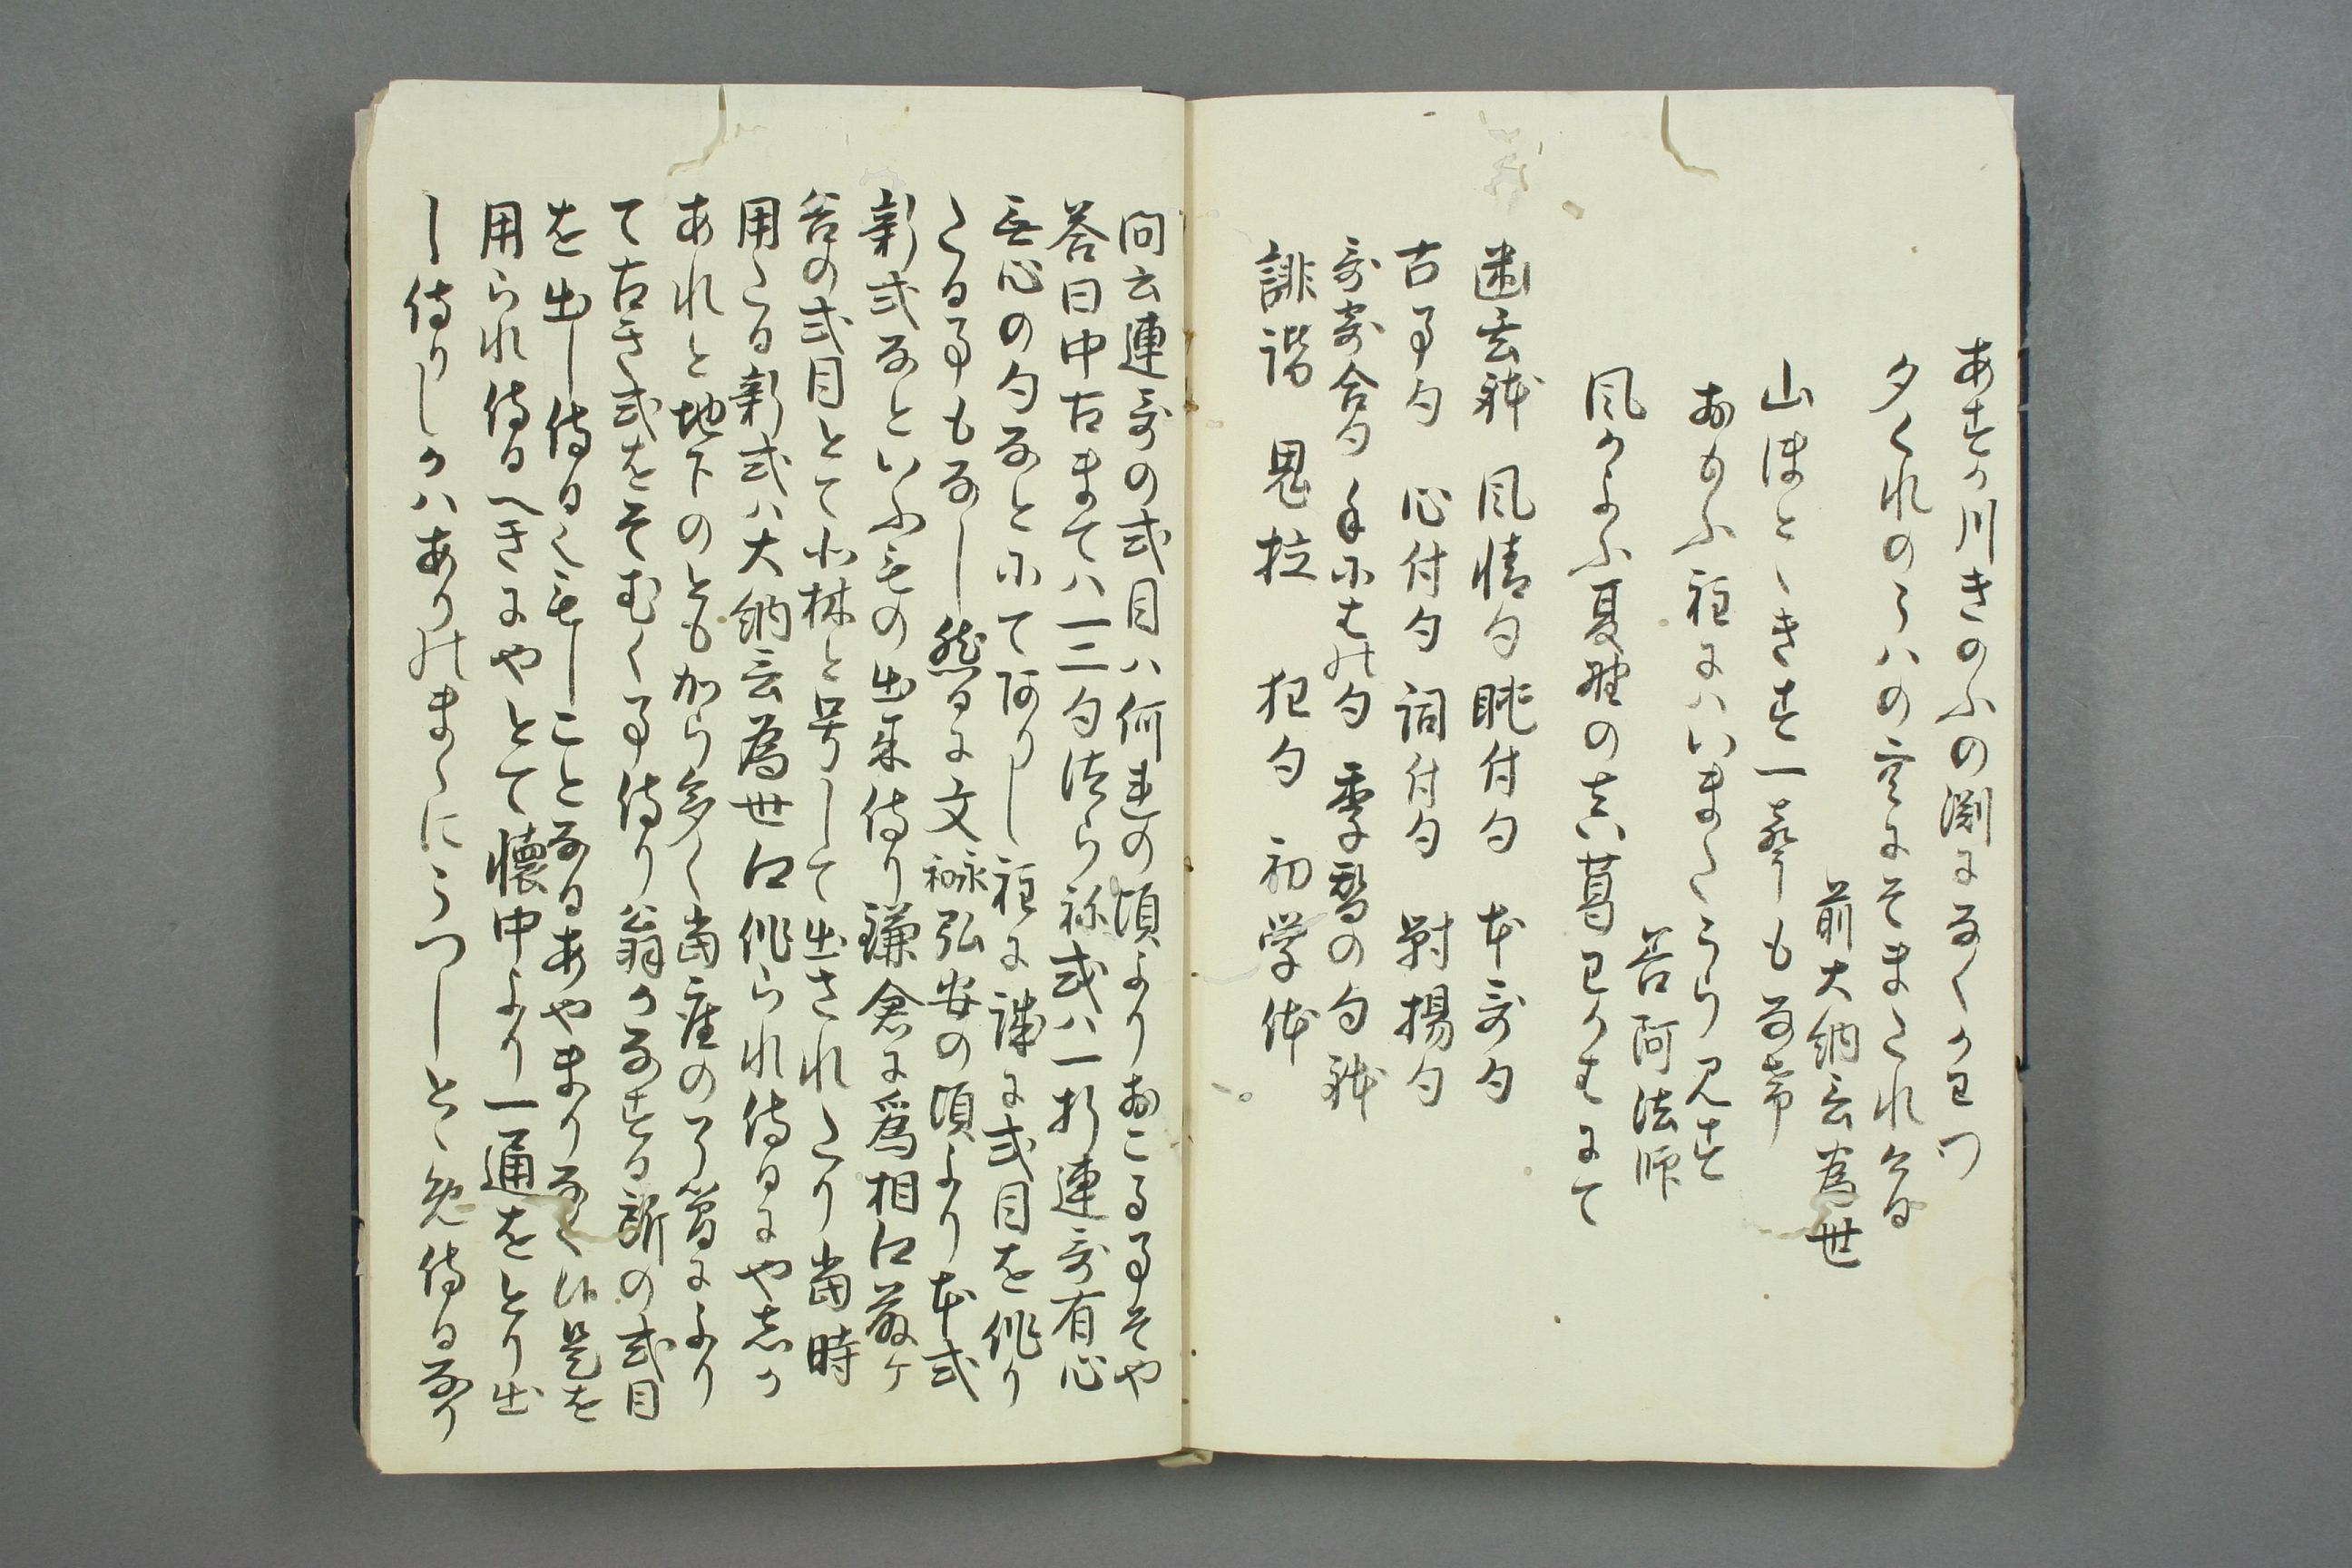 あすか川きのふの渕になくかはつ
夕くれのうへの空にそまたれける
前大納言為世
山ほとゝきす一聲もな常
おもふ程にハいまたうら見す
善阿法師
風かよふ夏野の真葛わかはにて
幽玄躰 風情句 眺付句 本哥句
古事句 心付句 詞付句 對揚句
哥寄合句 手尓をは句 季替の句躰
誹諧 鬼拉 狂句 初学体
問云連哥の式目ハ何連の頃よりおこるる事そや
答曰中古まてハ一二句徒ら称或ハ一折連哥有心
無心の句なと尓て阿りし程に謙に式目を作り
たる事もなし然るに文永弘安の頃より本式
新式なといふもの出来侍り鎌倉に為相卿藤ケ
谷の式目とて小林と号して出されたり當時
用たる新式ハ大納言為世卿作られ侍るにや志か
あれと地下のとも加ら多く當座の了簡により
て古き式をそむく事侍り翁かなする所の式目
を出し侍るくもしことなるあやまりなくハ是を
用られ侍るへきにやとて懐中より一通をとり出
し侍りしかハありのまゝにうつしとゝめ侍るなり